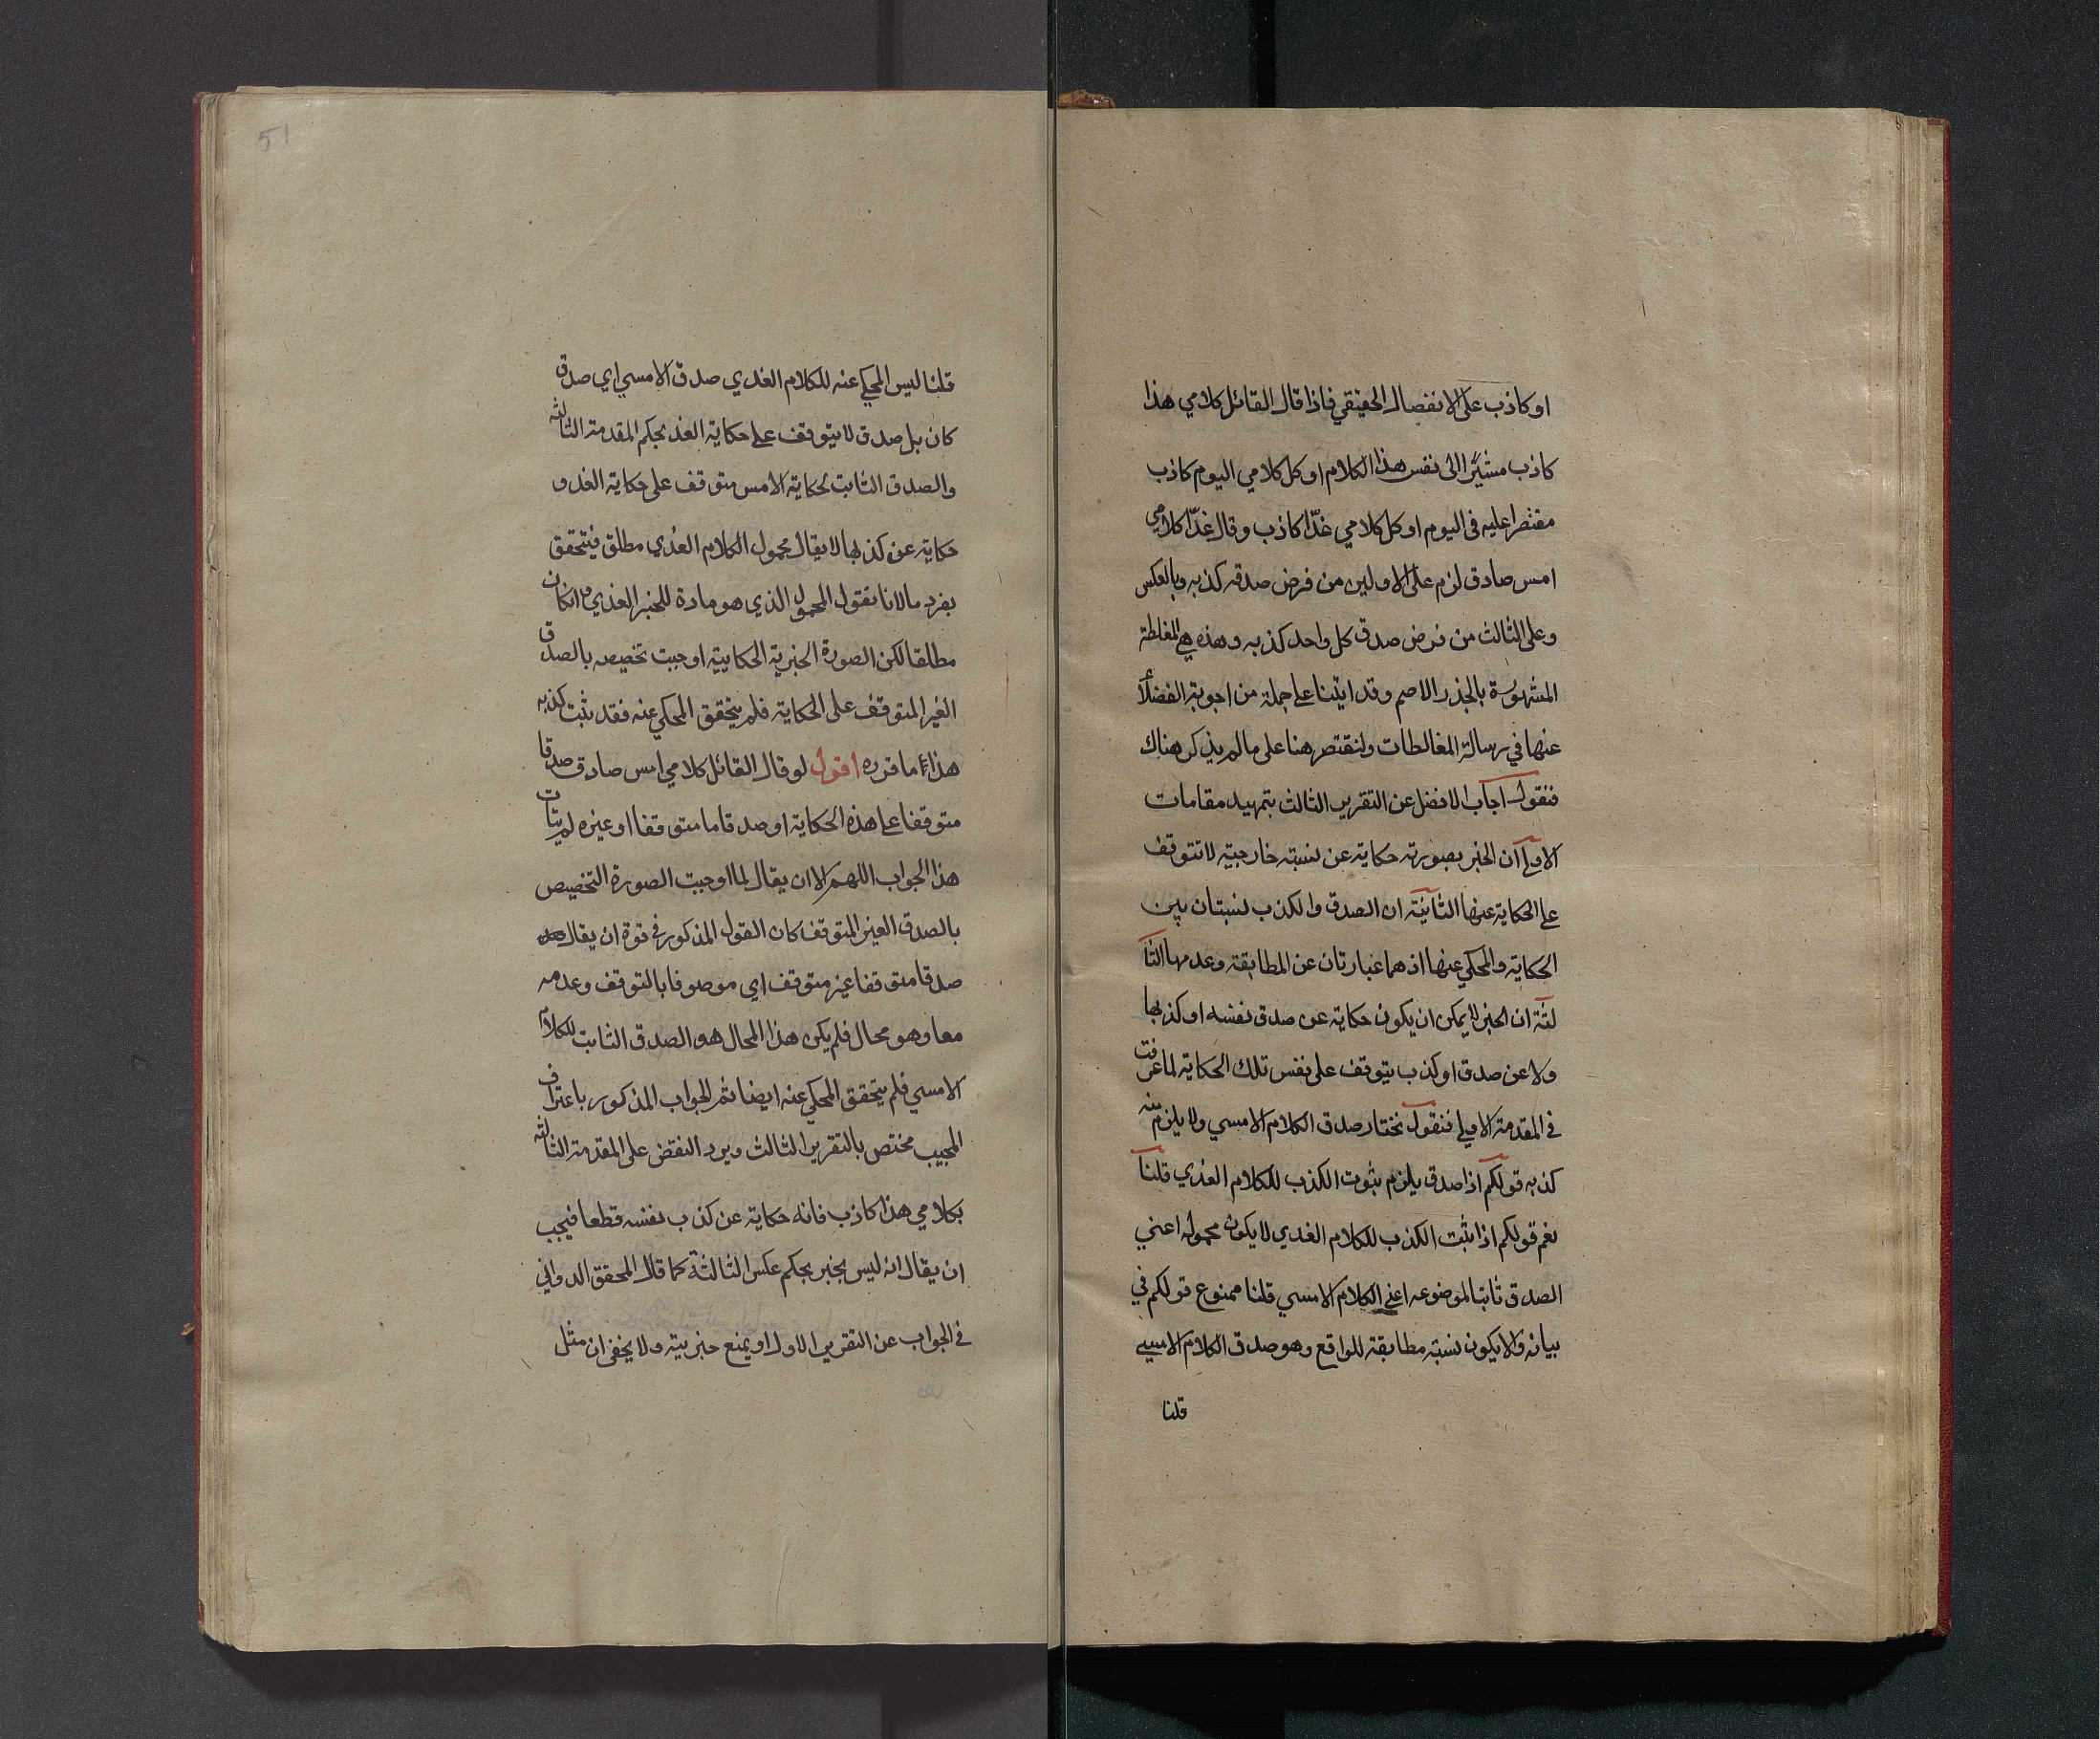 او كاذب على الانفصال الحقيقي فاذا قال القائل كلامي هذا
كاذب مشيرا الى نفس هذا الكلام او كل كلامي اليوم كاذب
مقتصرا عليه في اليوم او كل كلامي غدّا كاذب وقال غدّا كلامي
امس صادق لزم على الاولين من فرض صدقه كذبه وبالعكس
وعلى الثالث من فرض صدق كل واحد كذبه وهذه هي المغلطة
المشهورة بالجذر الاصم وقد اتينا على جملة من اجوبة الفضلأ
عنها في رسالة المغالطات ولنقتصر هنا على مالم يذكر هناك
فنقول اجاب الافضل عن التقرير الثالث بتمهيد مقامات
الاولى ان الخبر بصورته حكاية عن نسبته خارجية لا تتوقف
على الحكاية عنها الثانية ان الصدق والكذب نسبتان بين
الحكاية والمحكي عنها اذ هما عبارتان عن المطابقة وعدمها الثا
لثة ان الخبر لا يمكن ان يكون حكاية عن صدق نفسه او كذبها
ولا عن صدق او كذب يتوقف على نفس تلك الحكاية لما عرفت
في المقدمة الاولى فنقول نختار صدق الكلام الامسي ولا يلزم منه
كذبه قولكم اذا صدق يلزم ثبوت الكذب للكلام الغدي قلنا
نعم قولكم اذا ثبت الكذب للكلام الغدي لا يكون محموله اعني
الصدق ثابتا لموضوعه اعني الكلام الامسي قلنا ممنوع قولكم في
بيانه والا يكون نسبته مطابقة للواقع وهو صدق الكلام الامسي
قلنا
51
قلنا ليس المحكي عنه للكلام الغدي صدق الامسي اي صدق
كان بل صدق لا يتوقف على حكاية الغد بحكم المقدمة الثالثه
والصدق الثابت لحكاية الامس متوقف على حكاية الغد و
حكاية عن كذبها لا يقال محمول الكلام الغدي مطلق فيتحقق
بفرد ما لانا نقول المحمول الذي هو مادة للخبر الغدي وان كان
مطلقا لكن الصورة الخبرية الحكايية اوجبت تخصيصه بالصدق
الغير المتوقف على الحكاية فلم يتحقق المحكي عنه فقد ثبت كذبه
هذا ما قرره اقول لو قال القائل كلامي امس صادق صدقا
متوقفا على هذه الحكاية او صدقا ما متوقفا او غيره لم يتات
هذا الجواب اللهم الا ان يقال لما اوجبت الصورة التخصيص
بالصدق الغير المتوقف كان القول المذكور في قوة ان يقال
صدقا متوقفا غير متوقف اي موصوفا بالتوقف وعدمه
معا وهو محال فلم يكن هذا المحال هو الصدق الثابت للكلام
الامسي فلم يتحقق المحكي عنه ايضا ثم الجواب المذكور باعتراف
المجيب مختص بالتقرير الثالث ويرد النقض على المقدمة الثالثه
بكلامي هذا كاذب فانه حكاية عن كذب نفسه قطعا فيجب
ان يقال انه ليس بخبر بحكم عكس الثالثة كما قال المحقق الدواني
في الجواب عن التقرير الاول او يمنع خبريته ولا يخفى ان مثل